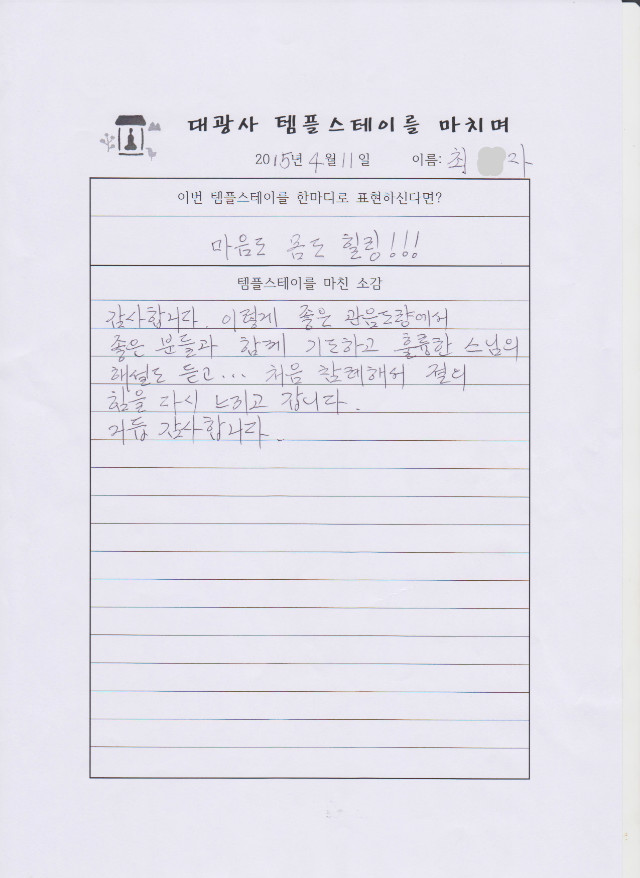 대광사 템플스테이를 마치며
2015년 4월 11일 이름: 최 자
이번 템플스테이를 한마디로 표현하신다면?
마음도 몸도 힐링!!!
템플스테이를 마친 소감
감사합니다. 이렇게 좋은 관음도량에서
좋은 분들과 함께 기도하고 훌륭한 스님의
해설도 듣고... 처음 참례해서 절의
참을 다시 느끼고 갑니다.
거듭 감사합니다.